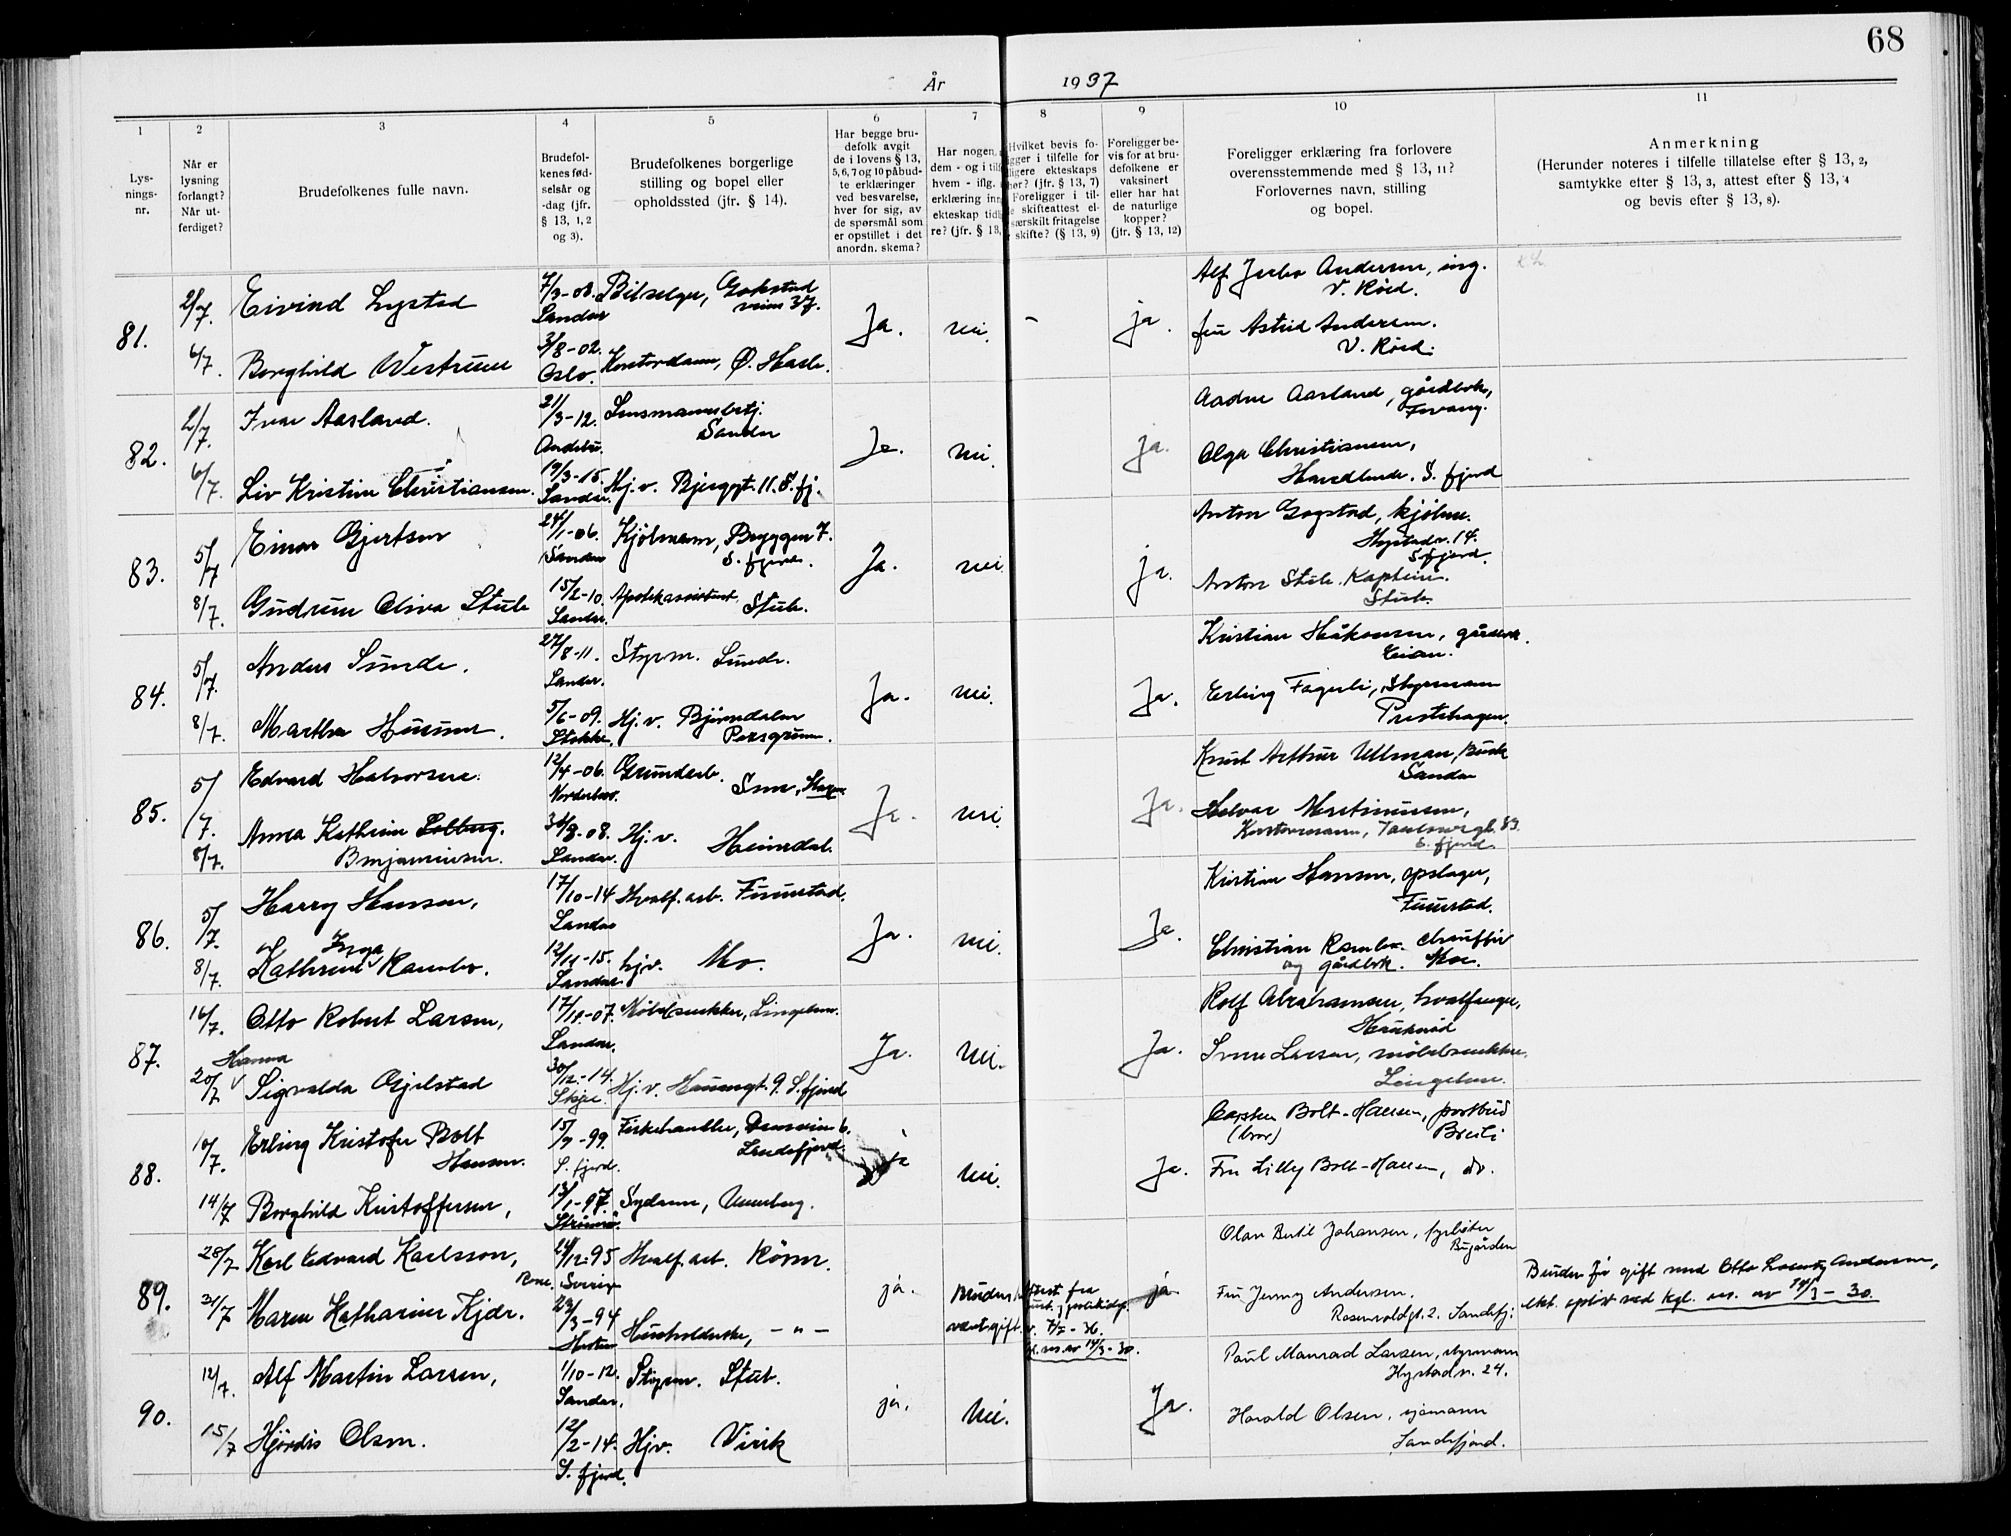 68
År 1937
1 2 3 4 5 6 7 8 9 10 11
Lys-
nings-
nr.
Når er
lysning
forlangt?
Når ut-
ferdiget?
Brudefolkenes fulle navn.
Brudefol-
kenes fød-
selsår og
-dag (jfr.
§ 13, 1, 2
og 3).
Brudefolkenes borgerlige
stilling og bopel eller
opholdssted (jfr. § 14).
Har begge bru-
defolk avgit
de i lovens § 13,
5, 6, 7 og 10 påbud-
te erklæringer
ved besvarelse,
hver for sig, av
de spørsmål som
er opstillet i det
anordn. skema?
Har nogen
dem - og i til
hvem - iflg.
erklæring inn
ekteskap tid
re? (jfr. § 13,
Hvilket bevis fo-
gger i tilfelle for
ligere ekteskaps
hør? (jfr. § 13, 7)
Foreligger i til-
e skifteattest el-
særskilt fritagelse
skifte? (§ 13, 9)
Foreligger be-
vis for at bru-
defolkene er
vaksinert
eller har hat
de naturlige
kopper?
(jfr. § 13, 12)
Foreligger erklæring fra forlovere
overensstemmende med § 13, 11?
Forlovernes navn, stilling
og bopel.
Anmerkning
(Herunder noteres i tilfelle tillatelse efter § 13, 2,
samtykke efter § 13, 3, attest efter § 13, 4
og bevis efter § 13, 8).
81. 2/7. Eivind Lystad 7/3-08. Sandar Bilselger, Gokstad
veien 37. Ja. nei. - ja. Andersen, ing.
V. Röed.
6/7. Borghild Westrum 3/8-02. Oslo. Kontordame, Ø. Hasle. fru Astrid Andersen.
V. Röed.
82. 2/7. Ivar Aasland. 21/3-12. Andebu. Lensmannsbetj.
Sandar Ja. nei. ja. Aadne Aasland, gårdbr.,
6/7. Liv Kristine Christiansen. 19/3-15. Sandar. Hj. v. Bjerggt. 11. S. fj. Olga Christiansen,
S. fjord
83. 5/7 Einar Gjertsen 24/1-06. Sandar Kjölmann, Bryggen 7.
S. fjord. Ja. nei. ja. Anton Gogstad, kjölm.
Hystadv. 14.
S. fjord.
8/7. Gudrun Oliva Stub 15/2-10. Sandar. Stub. Anton Stub. Kaptein.
Stub.
84. 5/7. Anders Sunde. 27/8-11. Sandar. Styrm. Sunde. Ja. nei. Ja. Kristian Håkonsen, gårdbr.
8/7. Martha Husum. 5/6-09. Stokke. Hj. v. Björndalen
Porsgrunn. Erling Fagerli, Styrmann
Prestehagen.
85. 5/7. Edvard Halvorsen. 12/4-06. Grundarb. Ja. nei. Ja. Knut Arthur Ullman,
Sandar
8/7. Anna Kathrine Solberg.
Benjaminsen. -08. Sandar. Hj. v. Heimdal. Halvar Martinussen,
Kontormann, 83.
S. fjord.
86. 5/7. Harry Hansen, 17/10-14 Sandar Hvalf. arb. Furustad. Ja. nei. Ja. Kristian Hansen, opslager,
Furustad.
8/7. Kathrine Inga Ramsbo. -15. Sandar. hjv. Mo. Christian Ramsbo. Chauffør
og gårdbr. Moe.
87. 16/7. Otto Robert Larsen, 17/10-07. Sandar. Möbelsnekker, Lingelem. Ja. nei. Ja. Rolf Abrahamsen, hvalfanger,
20/7 Hanna
Sigvalda Gjelstad 30/12-14. Skjee. Hj. v. Haumgt. 9. S. fjord Sverre Larsen, möbelsnekker
Lingelem.
88. 10/7. Erling Kristofer Bolt
Hansen. 15/9-99. S. fjord. Fiskehandler, 6.
Sandefjord. ja nei. Ja. Carsten Bolt-Hansen, postbud
(bror)
14/7 Borghild Kristoffersen, 13/1-97. Strömm. Sydame, Unneberg. Fru Lilly Bolt-Hansen, do.
89. 28/7 Karl Edvard Karlsson, -95 Sverige Hvalf. arb. Rönn. ja. Bruden
vært gift. Attest fra
7/7-36.
kgl. res. av 14/3-30. ja. Olav Bertil Johansen, fyrböter
Bugården
31/7 Maren Katharine Kjær. 23/3-94 Husholderske, - " - Fru Jenny Andersen.
Rosenvoldgt. 2. Sandefj.
Bruden för gift med Otto Andersen,
ekt. oplöst ved kgl. res. av 14/3-30.
90. 12/7. Alf Martin Larsen, 1/10-12. Sandar. Styrm. Stub. ja. nei. Ja. Paul Manrad Larsen, styrmann
Hystadv. 24.
15/7 Hjördis Olsen. 12/2-14. S. fjord. Hjv. Virik Harald Olsen, sjömann
Sandefjord.